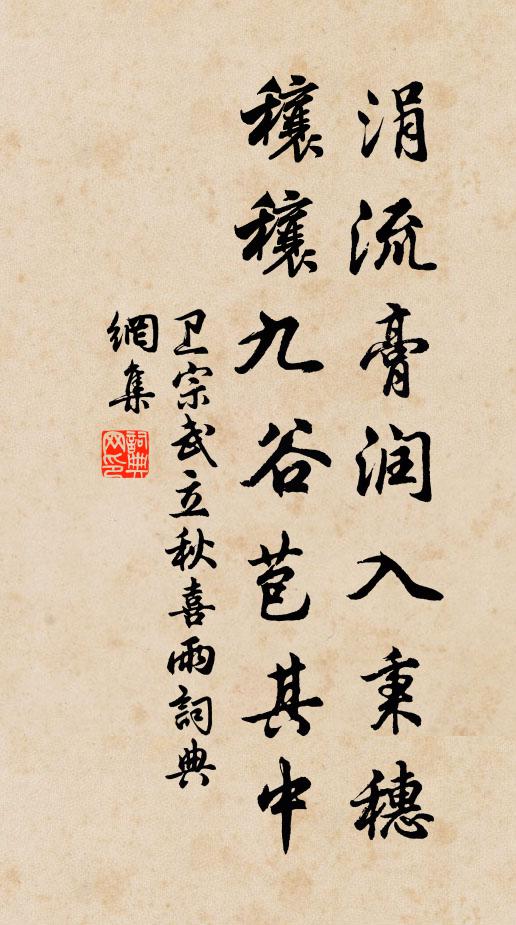 涓流膏润入秉穗
穰穰九谷苞其中
卫宗武立秋喜雨詞典
網集
詞典网印